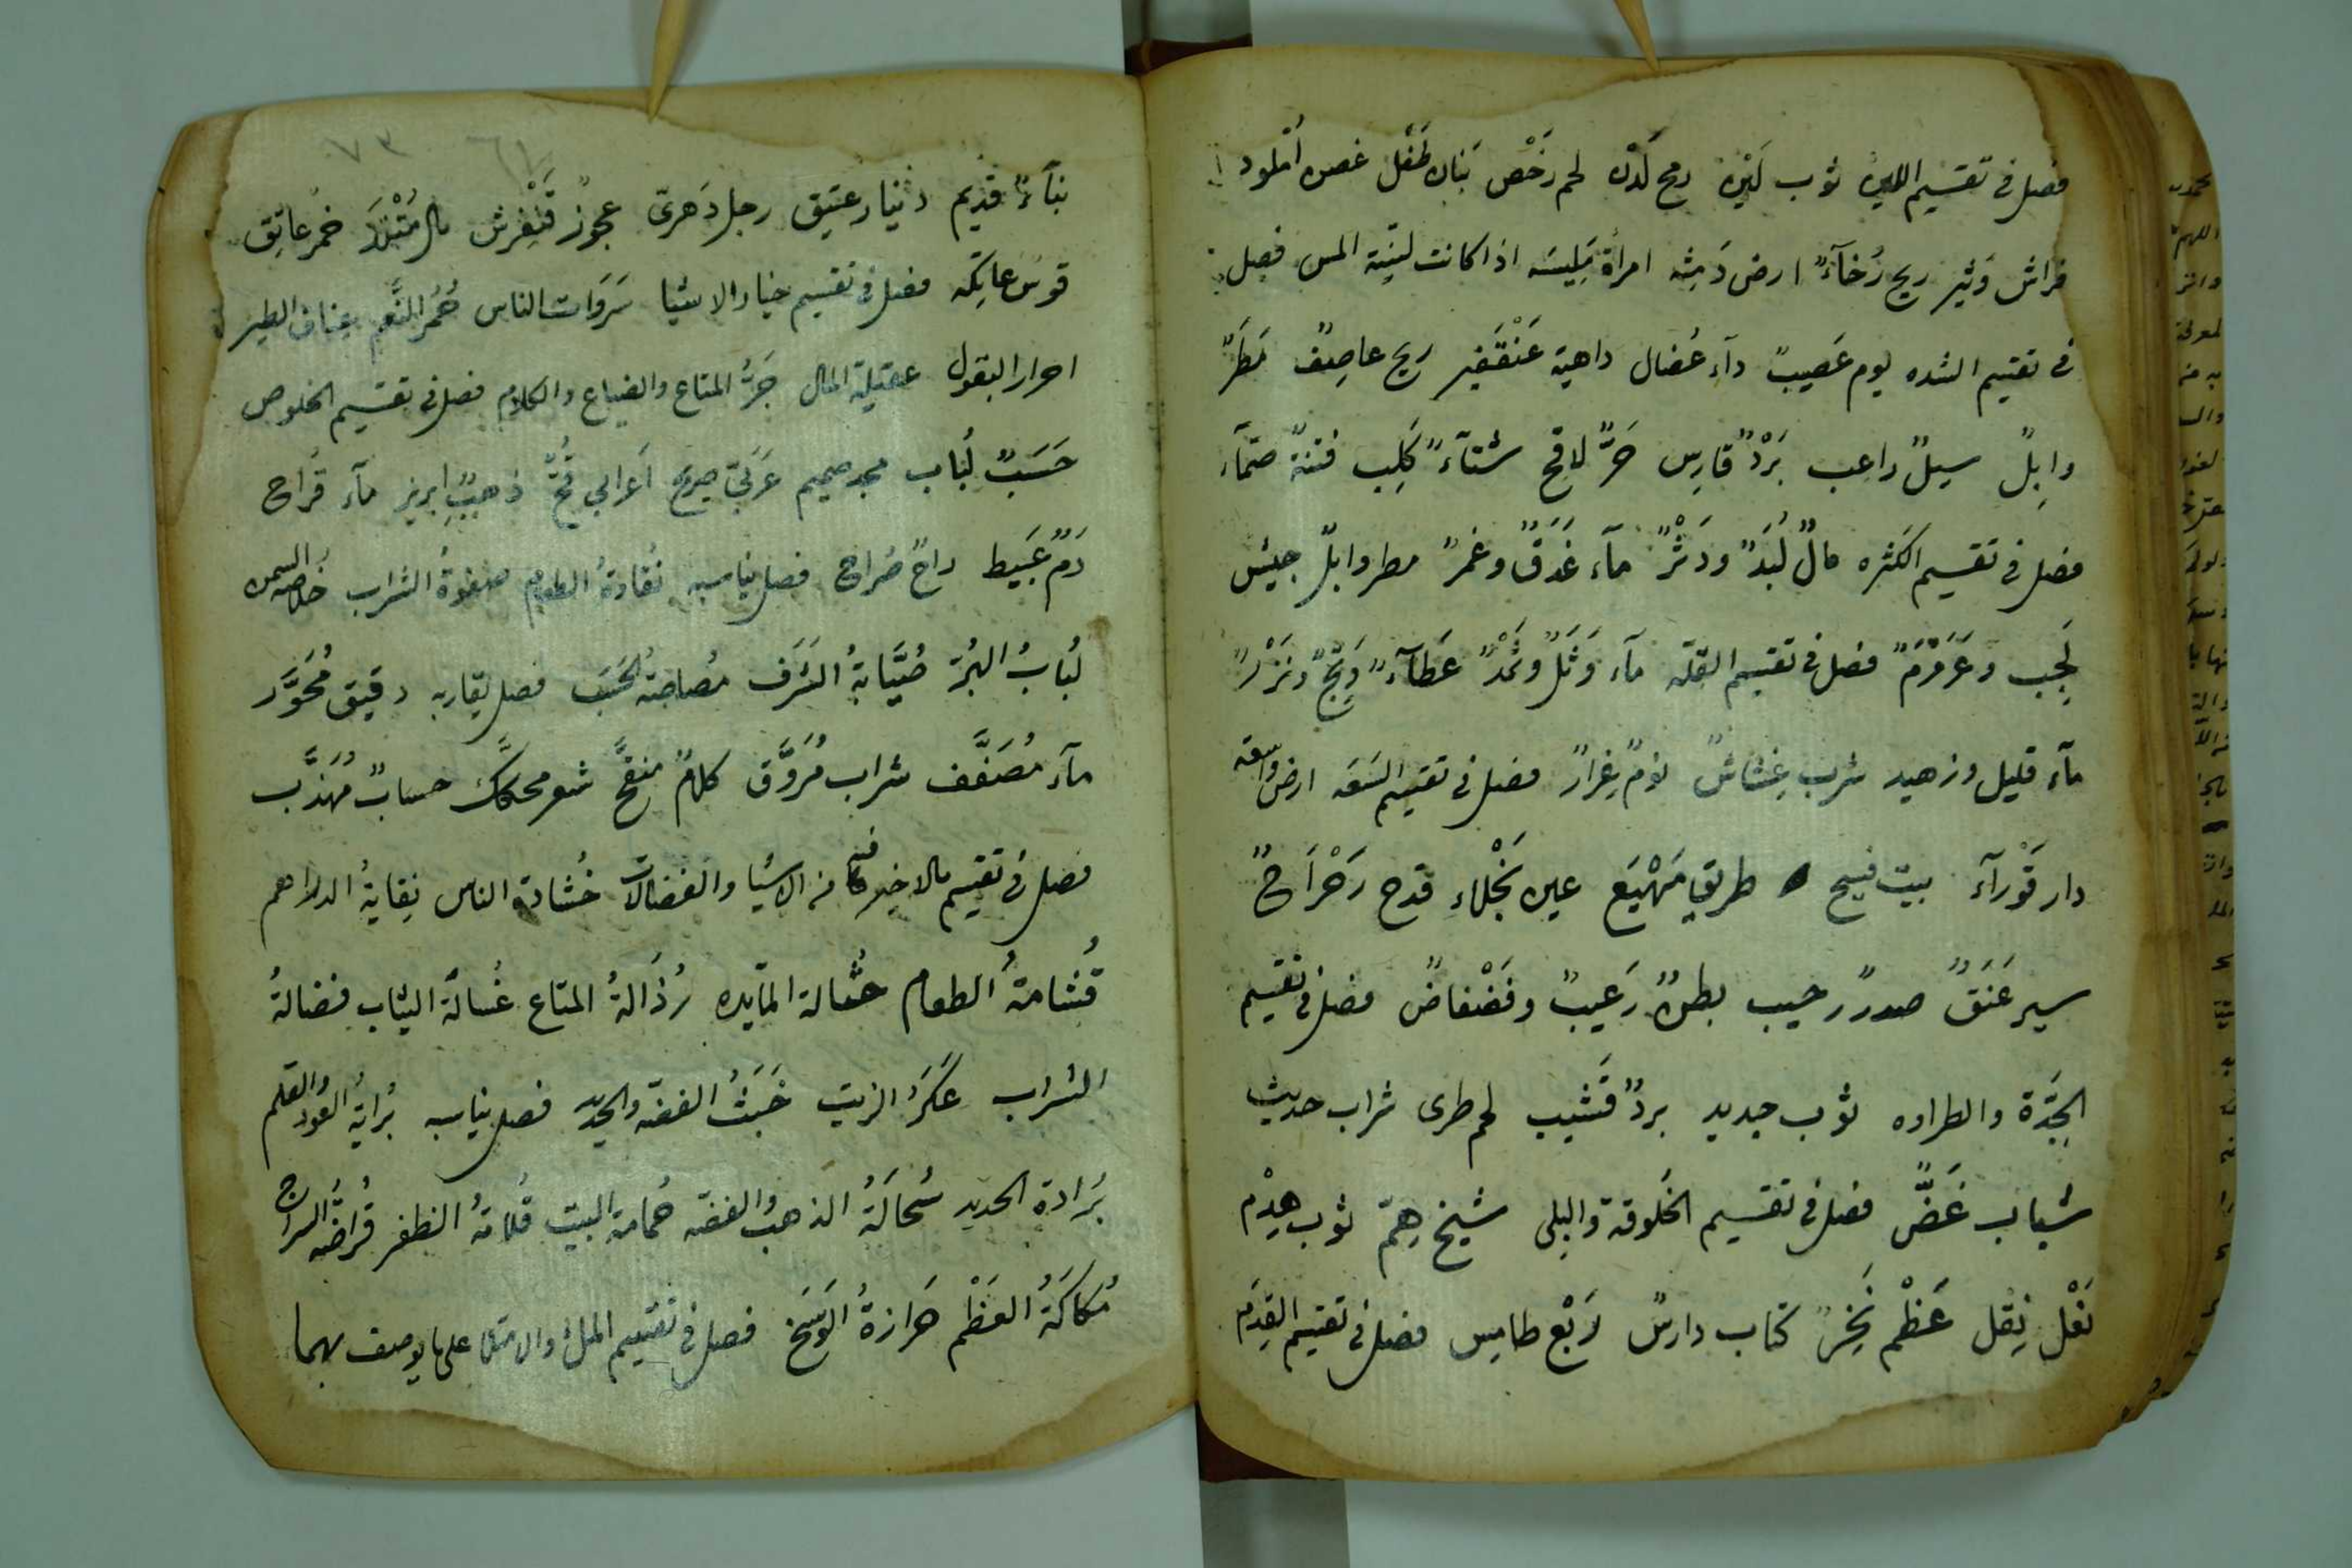 فصل فى تقسيم اللين ثوب لَيّن رمح لَدْن لحم رَخْص بَنان طَفْل غصن أُملود
فراش وَثير ريح رُخآءٌ ارض دَمِثه امرأة لَمِيسَه اذا كانت ليّنة المس فصل
فى تقسيم الشده يوم عَصيبٌ دآء عُضال داهية عَنْقَفير ريح عاصِفٌ مَطَرٌ
وابِلٌ سيلٌ راعب بَرْدٌ قارِس حَرٌّ لافح شتآءٌ كَلِب فتنةٌ صمّآء
فصل فى تقسيم الكثره مالٌ لُبَدٌ ودَثْرٌ مآء غَدَقٌ وغمرٌ مطر وابلٌ جيش
لَجِب وعَرَمْرَمٌ فصل فى تقسيم القلّه مآء وَشَلٌ وثَمْدٌ عَطآءٌ وَتِحٌ ونَزْرٌ
مآء قليل وزهيد شرب غِشاشٌ نومٌ غِرارٌ فصل فى تقسيم السَعَه ارض واسعه
دار قَوْرآء بيت فسيح طريق مَهْيَع عين نَجْلاء قدح رَحْرَاحٌ
سير عَنَقٌ صدرٌ رحيب بطنٌ رَغيبٌ وفَضْفاضٌ فصل فى تقسيم
الجِدَّة والطراوه ثوب جديد بردٌ قَشيب لحم طرى شراب حديث
شباب غَضٌّ فصل فى تقسيم الخَلوقة والبِلى شيخ هِمّ ثوب هِدْم
نَعْل نِقْل عَظْم نَخِرٌ كتاب دارسٌ رَبْع طامِس فصل فى تقسيم القِدَم
٧٣
بنآءٌ قديم دنيار عتيق رجل دَهرىّ عجوزٌ قَنْفَرِش مال مُتْلَدٌ خمر عاتِق
قوس عاتِكه فصل فى تقسيم خيار الاشيا سَرَوَات الناس حُمْرُ النَّعَم عِتاق الطير
احرار البقول عقيلة المال حُرُّ المتاع والضياع والكلام فصل فى تقسيم الخلوص
حَسَبٌ لُباب مجد صميم عَرَبىّ صريح أعرابي قُحّ ذهبٌ ابريز مآء قَراح
دَمٌ عَبيط راحٌ صُراح فصل يناسبه نُقاوةُ الطعام صفوةُ الشراب خُلاصةُ السمن
لُبابُ البُرّ صُيَّابةُ الشَرَف مُصاصةُ الحَسَب فصل يقاربه دقيق مُحَوَّر
مآء مُصَفَّف شراب مُرَوَّق كلامٌ منقحٌ شعر محكَّك حسابٌ مُهَذَّب
فصل فى تقسيم مالا خير فيه من الاشيا والفضالات خُشارة الناس نِفايةُ الدراهم
قُشامةُ الطعام حُثالة المآيده رُذَالةُ المتاع غُسالَةُ الثياب فضالةُ
الشراب عَكَرُ الزيت خَبَثُ الفضّه والحديد فصل يناسبه بُرايةُ العُودِ والقلم
بُرَادة الحديد سُحَالَةُ الذهب والفضّه حُمامة البيت قُلامَةُ الظفر قُراضَةُ السراج
مُكاكَةُ العَظْم حَرازةُ الوَسَخ فصل فى تقسيم الملٔ والامتلا على ما يوصف بهما